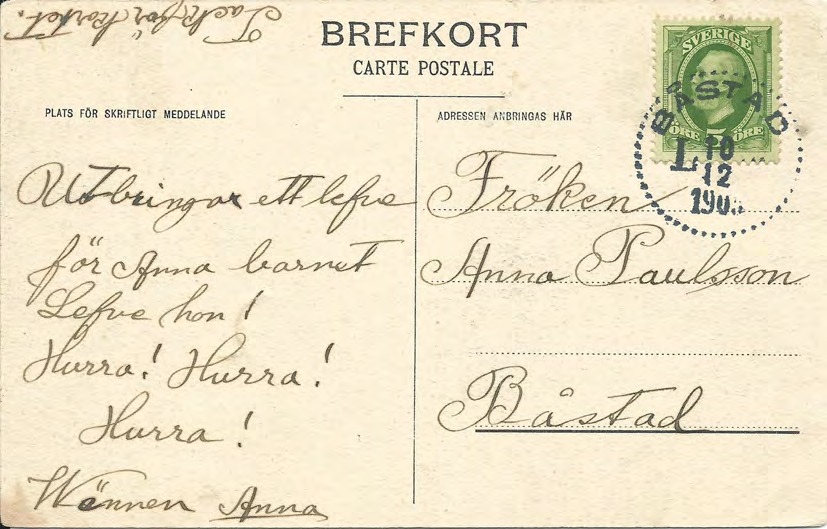 Tack för kortet.
BREFKORT
CARTE POSTALE
PLATS FÖR SKRIFTLIGT MEDDELANDE
ADRESSEN ANBRINGAS HÄR
SVERIGE
ÖRE ÖRE
BÅSTAD
L. 10
12
Utbringar ett lefve
för Anna barnet
Lefve hon!
Hurra! Hurra!
Hurra!
Wännen Anna
Fröken
Anna Paulsson
Båstad